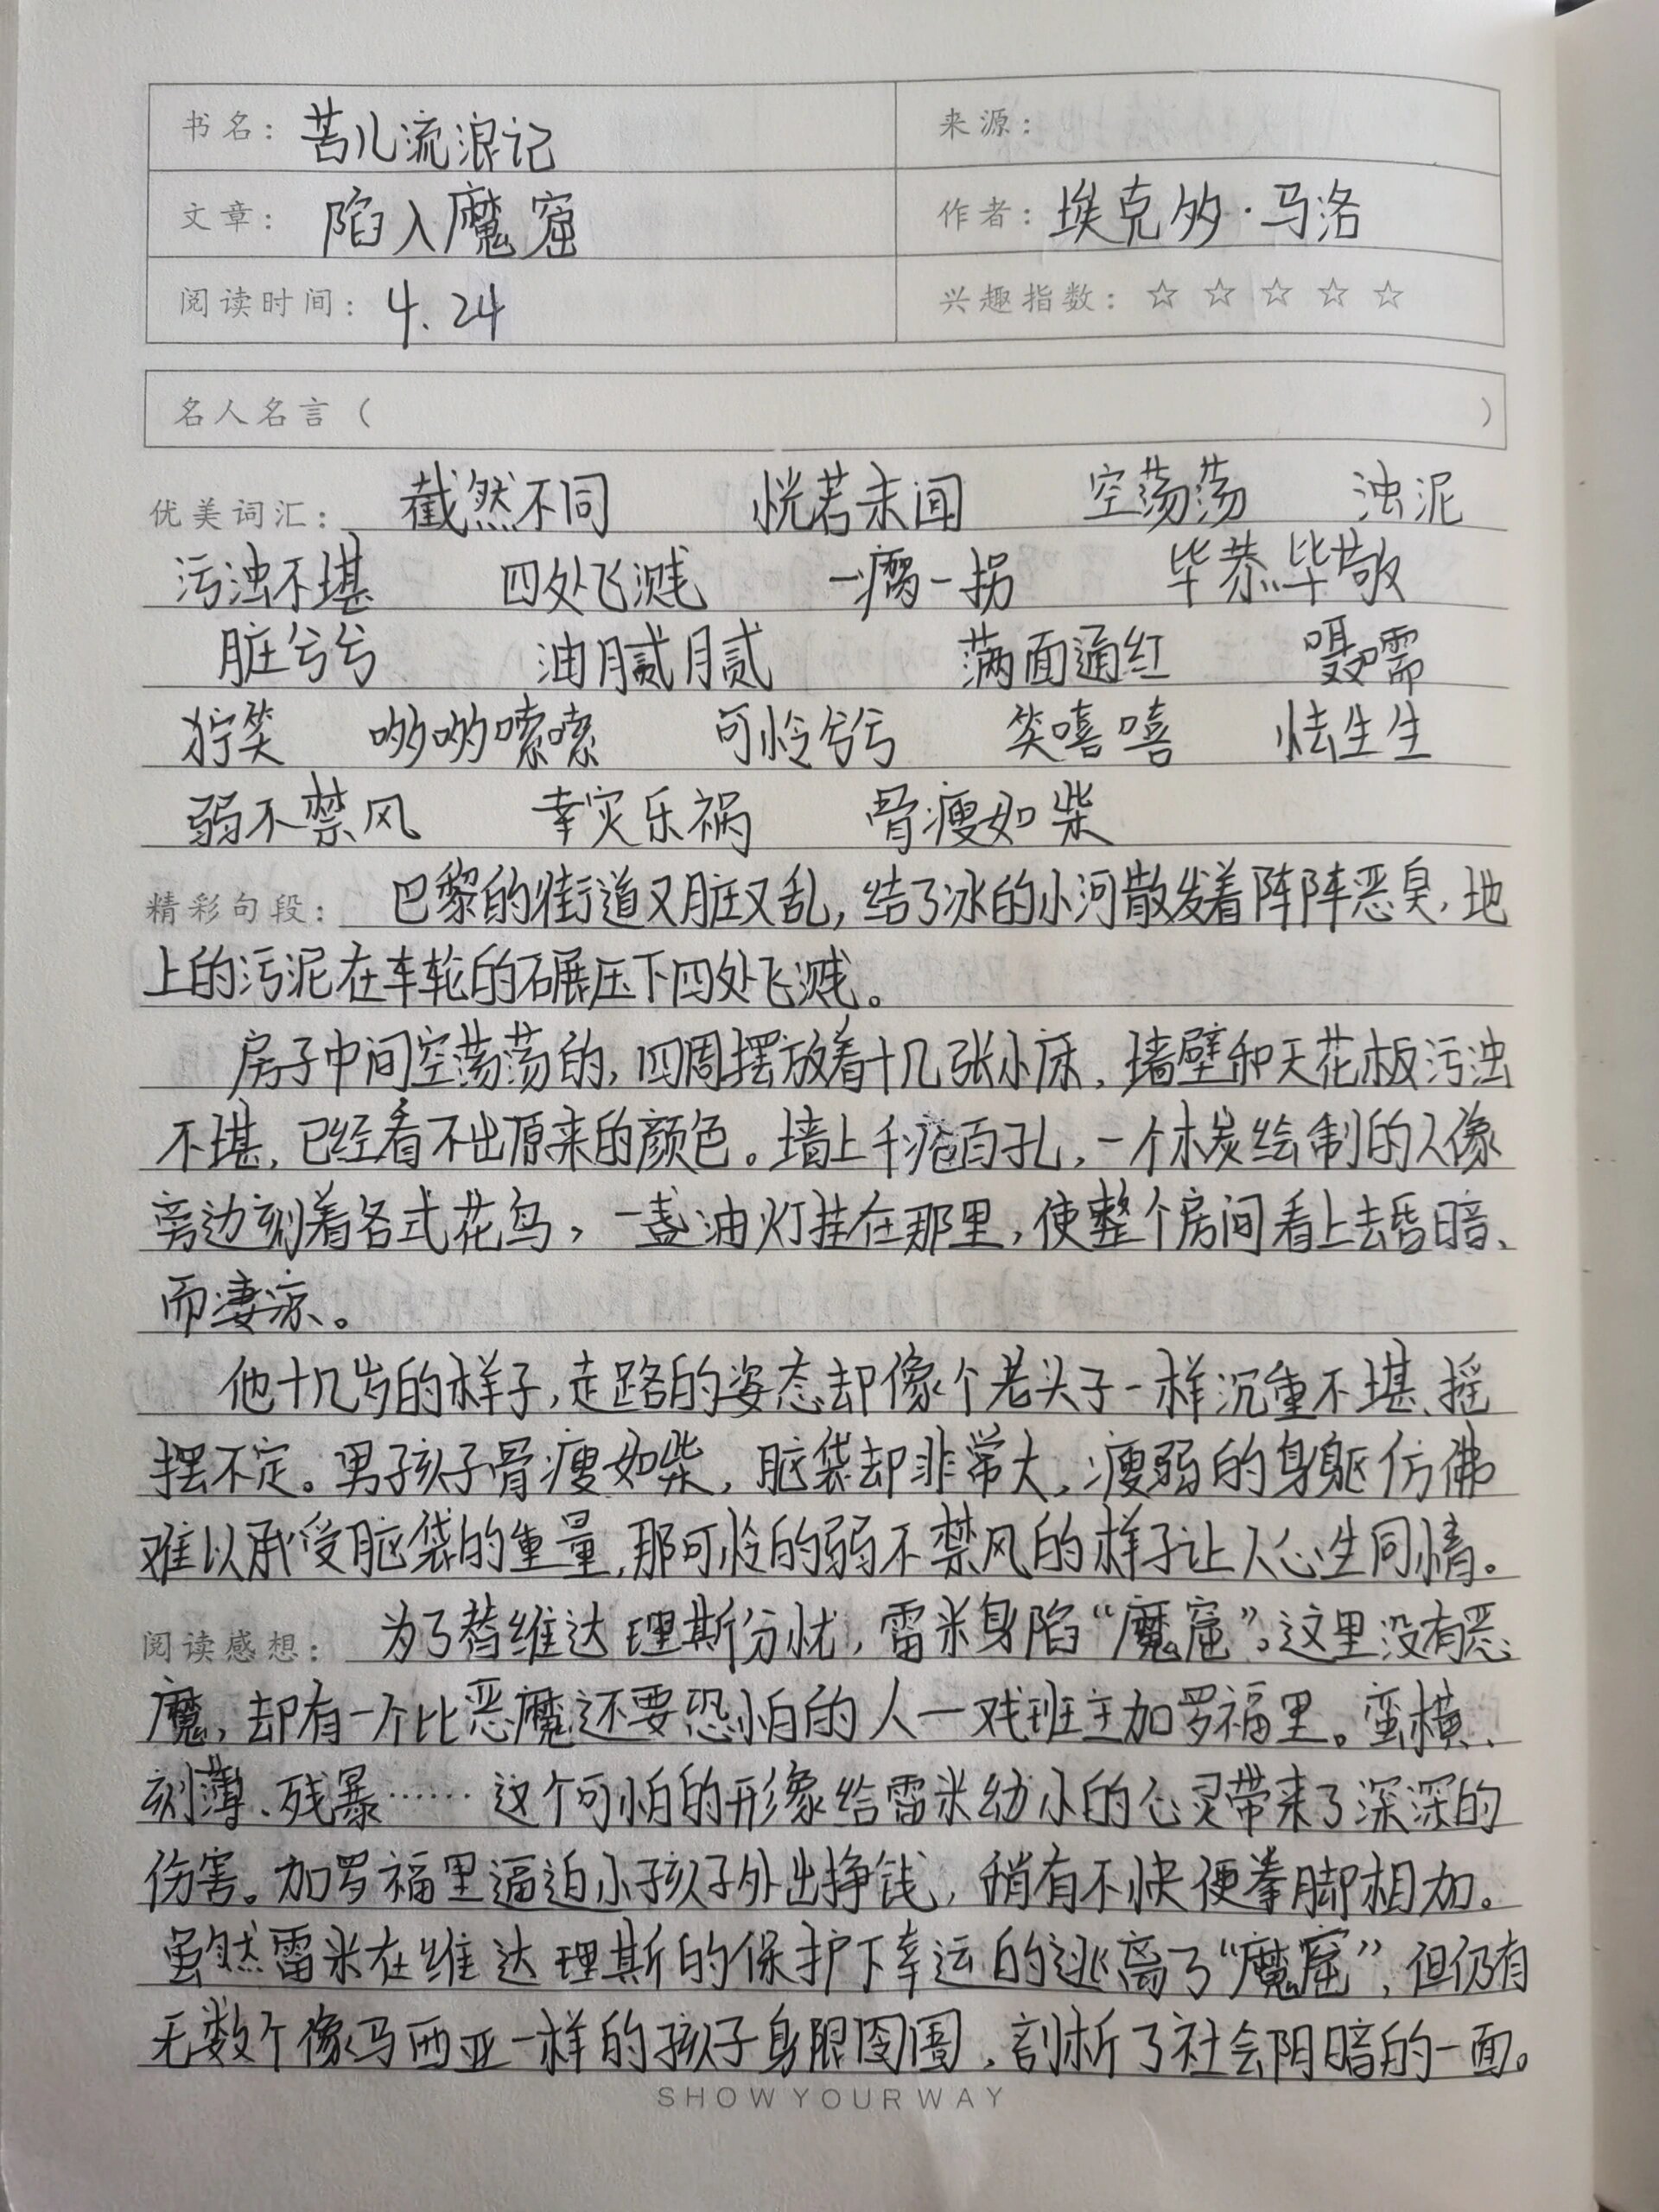 书名： 苦儿流浪记 来源：
文章： 陷入魔窟 作者： 埃克多·马洛
阅读时间： 4.24 兴趣指数：☆ ☆ ☆ ☆ ☆
名人名言（ ）
优美词汇： 截然不同 恍若未闻 空荡荡 浊泥
污浊不堪 四处飞溅 一瘸一拐 毕恭毕敬
脏兮兮 油腻腻 满面通红 嗫嚅
狞笑 哆哆嗦嗦 可怜兮兮 笑嘻嘻 怯生生
弱不禁风 幸灾乐祸 骨瘦如柴
精彩句段： 巴黎的街道又脏又乱，结了冰的小河散发着阵阵恶臭，地
上的污泥在车轮的碾压下四处飞溅。
房子中间空荡荡的，四周摆放着十几张小床，墙壁和天花板污浊
不堪，已经看不出原来的颜色。墙上千疮百孔，一个木炭绘制的人像
旁边刻着各式花鸟，一盏油灯挂在那里，使整个房间看上去昏暗、
而凄凉。
他十几岁的样子，走路的姿态却像个老头子一样沉重不堪、摇
摆不定。男孩子骨瘦如柴，脑袋却非常大，瘦弱的身躯仿佛
难以承受脑袋的重量，那可怜的弱不禁风的样子让人心生同情。
阅读感想： 为了替维达理斯分忧，雷米身陷“魔窟”。这里没有恶
魔，却有一个比恶魔还要恐怕的人一戏班主加罗福里。蛮横、
刻薄、残暴……这个可怕的形象给雷米幼小的心灵带来了深深的
伤害。加罗福里逼迫小孩子外出挣钱，稍有不快便拳脚相加。
虽然雷米在维达理斯的保护下幸运的逃离了“魔窟”，但仍有
无数个像马西亚一样的孩子身限囹圄，剖析了社会阴暗的一面。
SHOW YOUR WAY